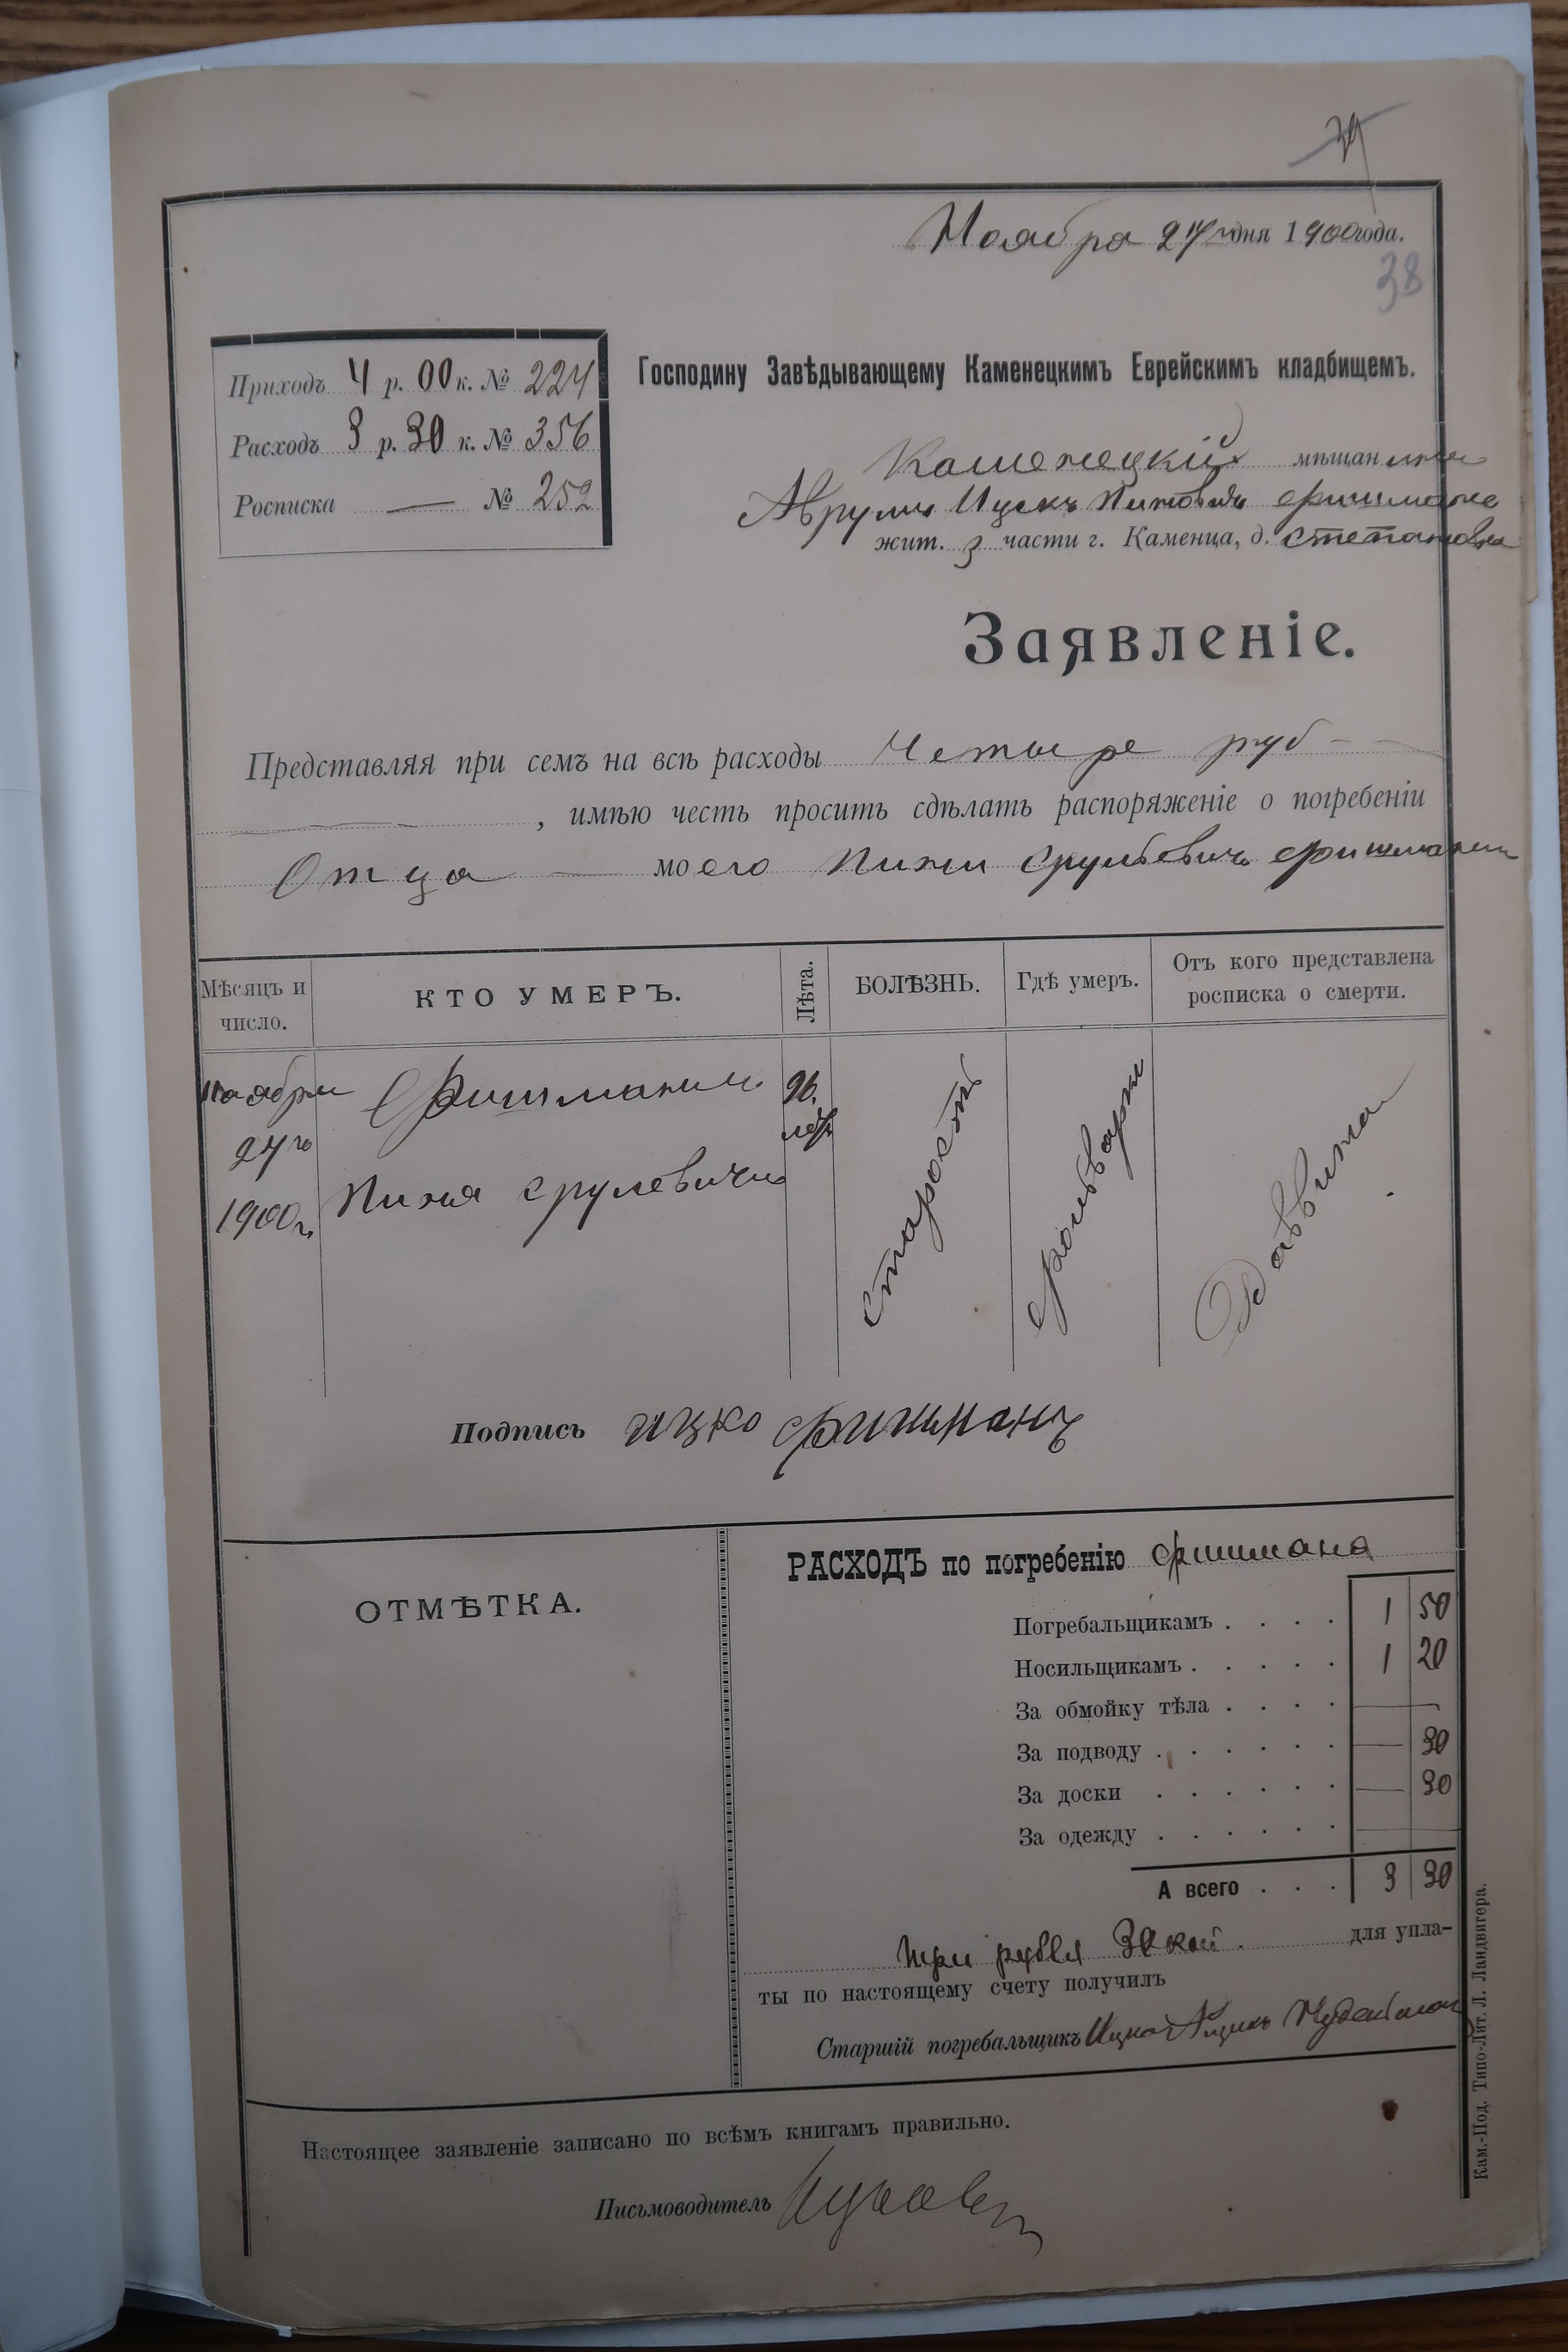 Ноября 24го дня 1900 года.
38
Приходъ 4 р. 00 к. № 224
Расходъ 3 р. 30 к. № 356
Росписка — № 252
Господину Завѣдывающему Каменецкимъ Еврейскимъ кладбищемъ.
Каменецкій мѣщан
Аврумъ Ицекъ Фишмана
жит. 3 части г. Каменца, д. Степанова
Заявленіе.
Представляя при семъ на всѣ расходы Четыре руб
, имѣю честь просить сдѣлать распоряженіе о погребеніи
Отца — моего Пини Срульевича Фишмана
Мѣсяцъ и число.
КТО УМЕРЪ.
Лѣта.
БОЛѢЗНЬ.
Гдѣ умеръ.
Отъ кого представлена росписка о смерти.
Ноября 24го 1900 г.
Фишманъ
Пиня Срулевичъ
96. лѣт
старость
Фольварк
Подпись ицко Фишманъ
ОТМѢТКА.
РАСХОДЪ по погребенію Фишмана
Погребальщикамъ . . . . 1 50
Носильщикамъ . . . . . 1 20
За обмойку тѣла . . . . —
За подводу . . . . . . — 30
За доски . . . . . . — 30
За одежду . . . . . . —
А всего . . . 3 30
три рубля 30 коп. для упла-
ты по настоящему счету получилъ
Старшій погребальщикъ Ицко
Настоящее заявленіе записано по всѣмъ книгамъ правильно.
Письмоводитель
Кам.-Под. Типо-Лит. Л. Ландвигера.